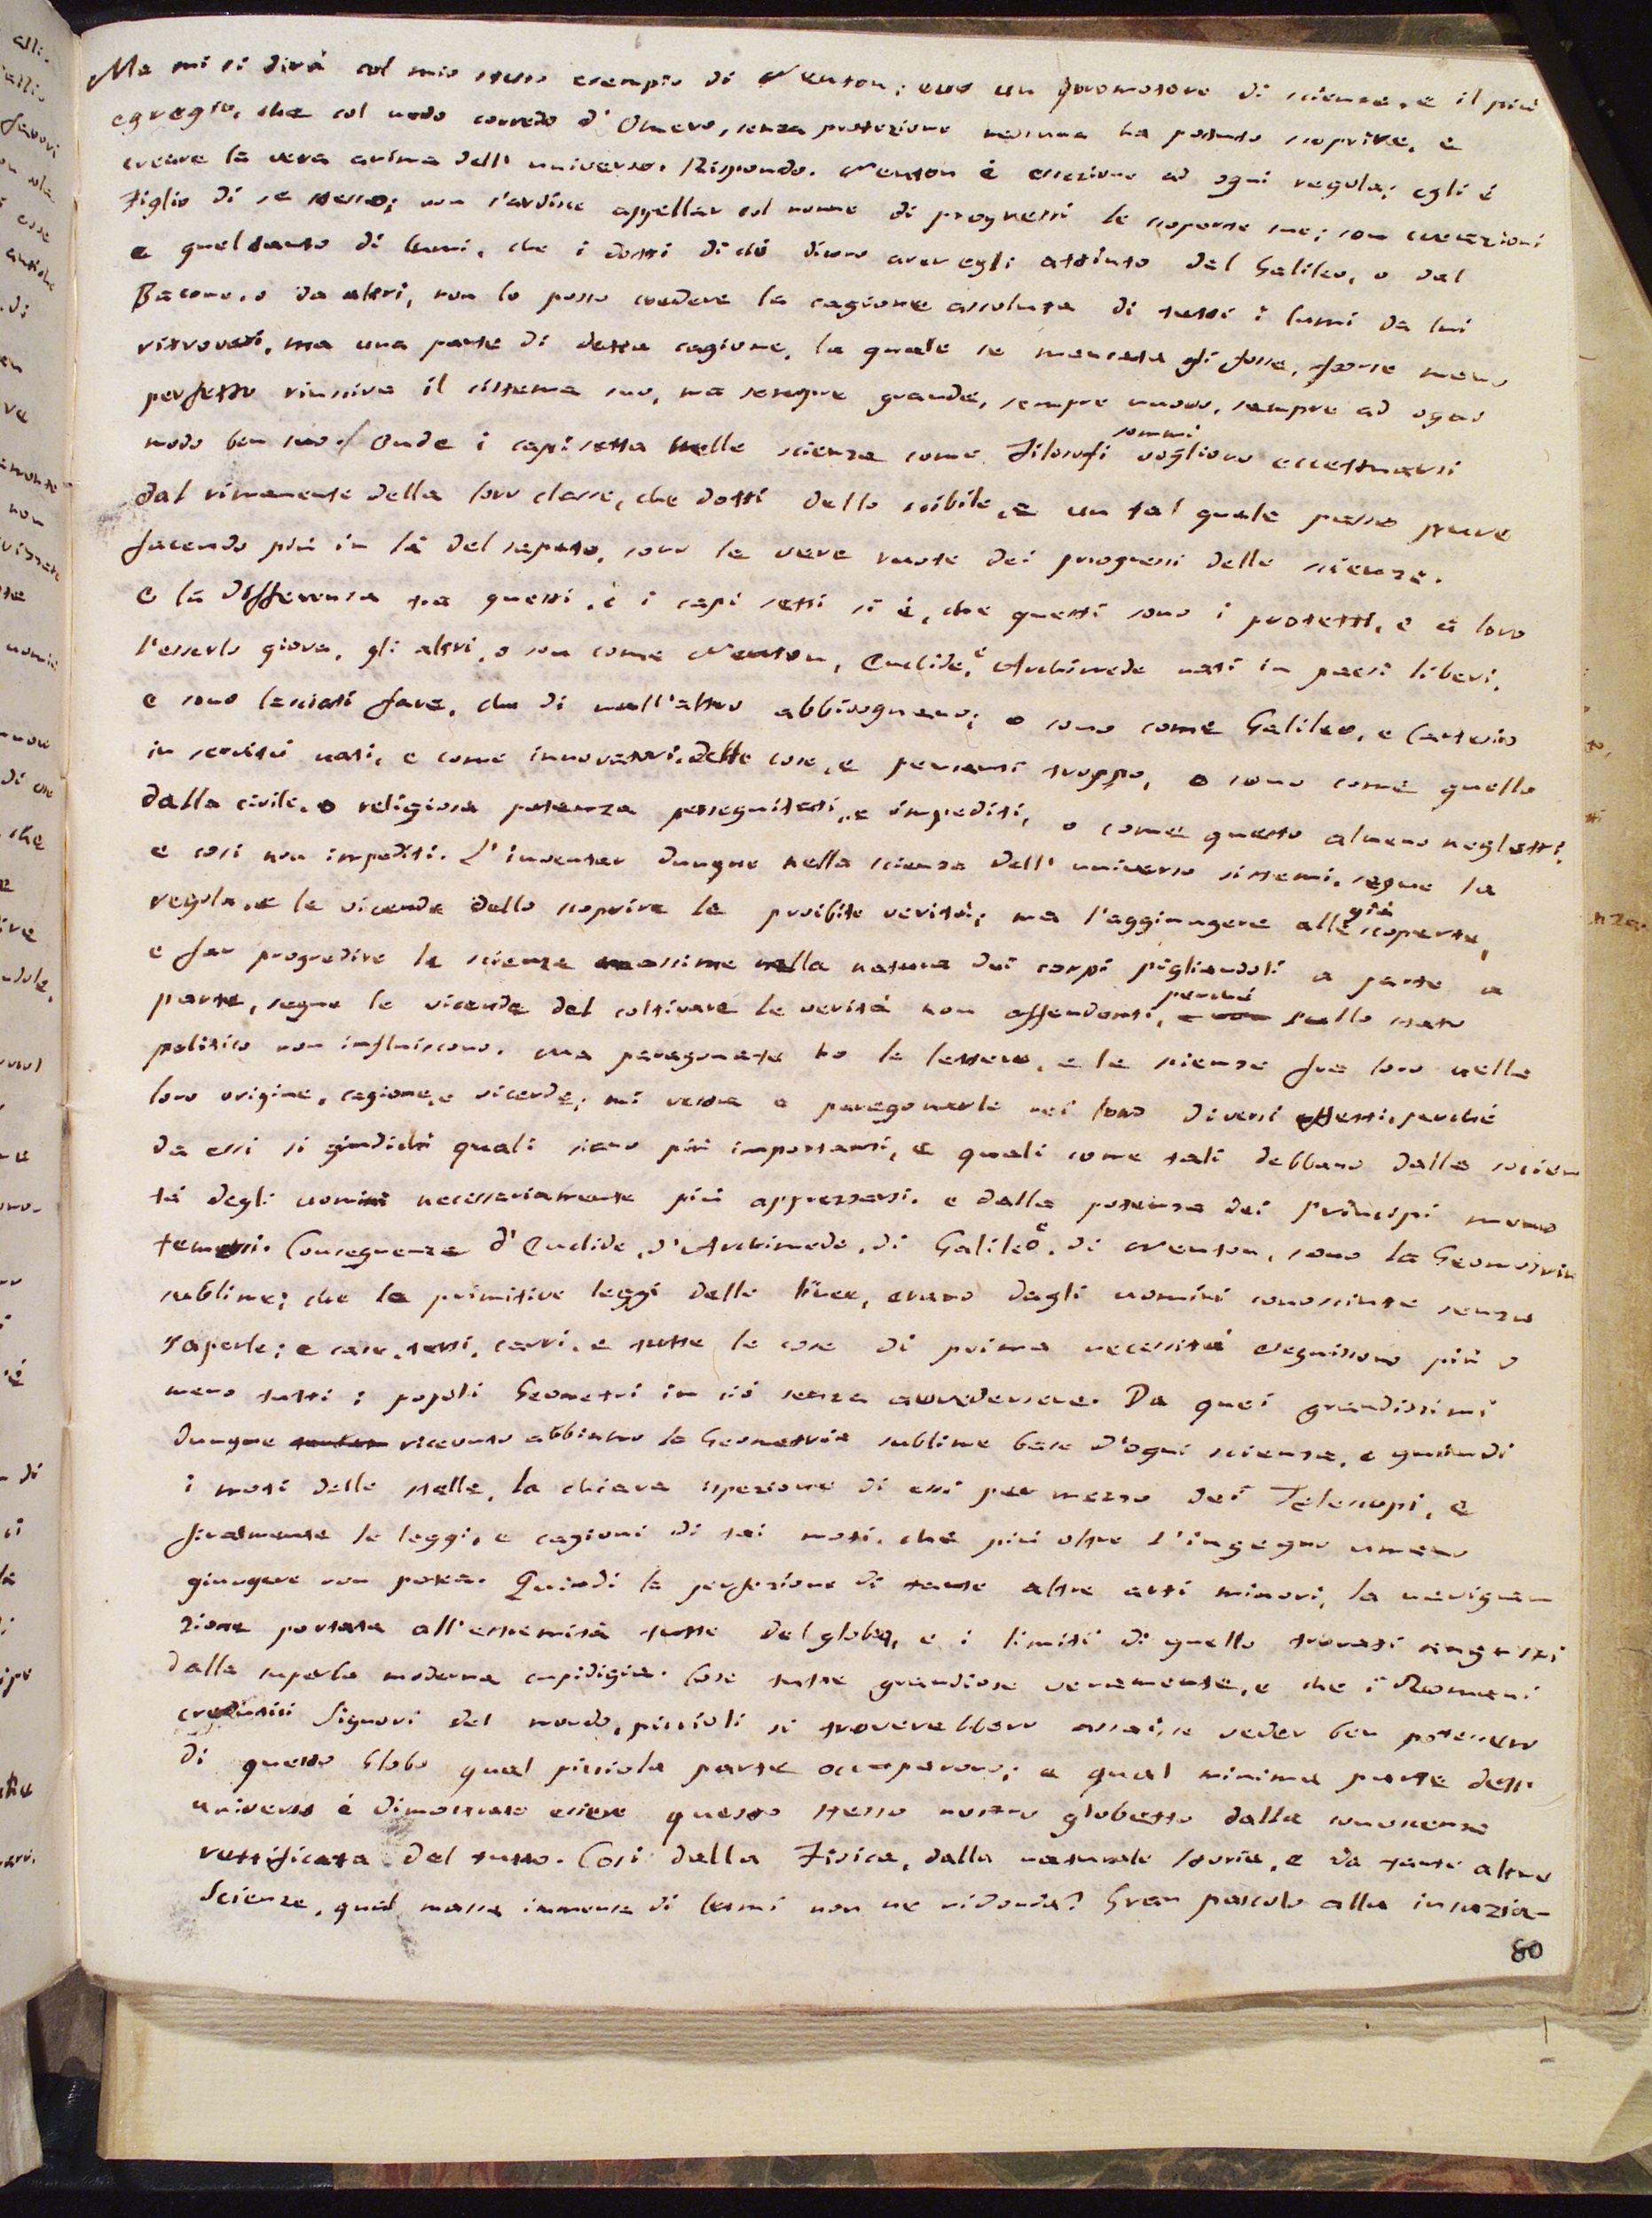 Ma mi si dirà col mio stesso esempio di Newton; ecco un promotore di scienze, e il più
egregio, che col nudo corredo d'Omero, senza protezione nessuna ha potuto scoprire, e
creare la vera anima dell' universo. Rispondo. Newton è eccezione ad ogni regola; egli è
Figlio di se stesso; non s'ardisce appellar col nome di progressi le scoperte sue; son creazioni
e quel tanto di lumi, che i dotti di ciò dicono aver egli attinto dal Galileo, o dal
Bacone, o da altri, non lo posso credere la cagione assoluta di tutti i lumi da lui
ritrovati, ma una parte di detta cagione, la quale se mancata gli fosse, forse meno
perfetto riusciva il sistema suo, ma sempre grande, sempre nuovo, sempre ad ogni
modo ben suo. Onde i capi setta nelle scienze come Filosofi sommi vogliono eccettuarsi
dal rimanente della loro classe, che dotti dello scibile, e un tal quale passo pure
facendo più in là del saputo, sono le vere ruote dei progressi delle scienze.
E la differenza tra questi, e i capi setti si è, che questi sono i protetti, e a loro
l'esserlo giova, gli altri, o son come Newton, Euclide, e Archimede nati in paesi liberi,
e sono lasciati fare, che di null'altro abbisognano; o sono come Galileo, e Cartesio
in servitù nati, e come innovatori delle cose, e pensanti troppo, o sono come quello
dalla civile, o religiosa potenza perseguitati, e impediti, o come questo almeno negletti,
e così non impediti. L'inventar dunque nella scienza dell' universo sistemi, segue la
regola, e le vicende dello scoprire le proibite verità; ma l'aggiungere alle già scoperte,
e far progredire le scienze massime nella natura dei corpi pigliandoli a parte a
parte, segue le vicende del coltivare le verità non offendenti, perché sullo stato
politico non influiscono. Ma paragonate ho le lettere, e le scienze fra loro nelle
loro origine, cagione, e vicende; mi resta a paragonarle nei loro diversi effetti, perché
da essi si giudichi quali siano più importanti, e quali come tali debbano dalla socie-
tà degli uomini necessariamente più apprezzarsi, e dalla potenza dei Principi meno
temersi. Conseguenze d'Euclide, d'Archimede, di Galileo, e di Newton, sono la Geometria
sublime; che le primitive leggi delle linee, erano dagli uomini conosciute senza
saperle; e case, tetti, carri, e tutte le cose di prima necessità eseguiscono più o
meno tutti i popoli Geometri in ciò senza avvedersene. Da quei grandissimi
dunque ricevuto abbiamo la Geometria sublime base d'ogni scienza, e quindi
i moti delle stelle, la chiara ispezione di essi per mezzo dei Telescopi, e
finalmente le leggi, e cagioni di tai moti, che più oltre l'ingegno umano
giungere non potea. Quindi la perfezione di tante altre arti minori, la naviga-
zione portata all'estremità tutte del globo, e i limiti di quello trovati angusti
dalla superba moderna cupidigia. Cose tutte grandiose veramente, e che i Romani
credutisi Signori del mondo, piccioli si troverebbero assai, se veder ben potessero
di questo Globo qual picciola parte occuparono; e qual minima parte dell'
universo è dimostrato essere questo stesso nostro globetto dalla conoscenza
rettificata del tutto. Così dalla Fisica, dalla naturale storia, e da tante altre
Scienze, qual massa immensa di lumi non ne ridonda? Gran pascolo alla insazia-
80